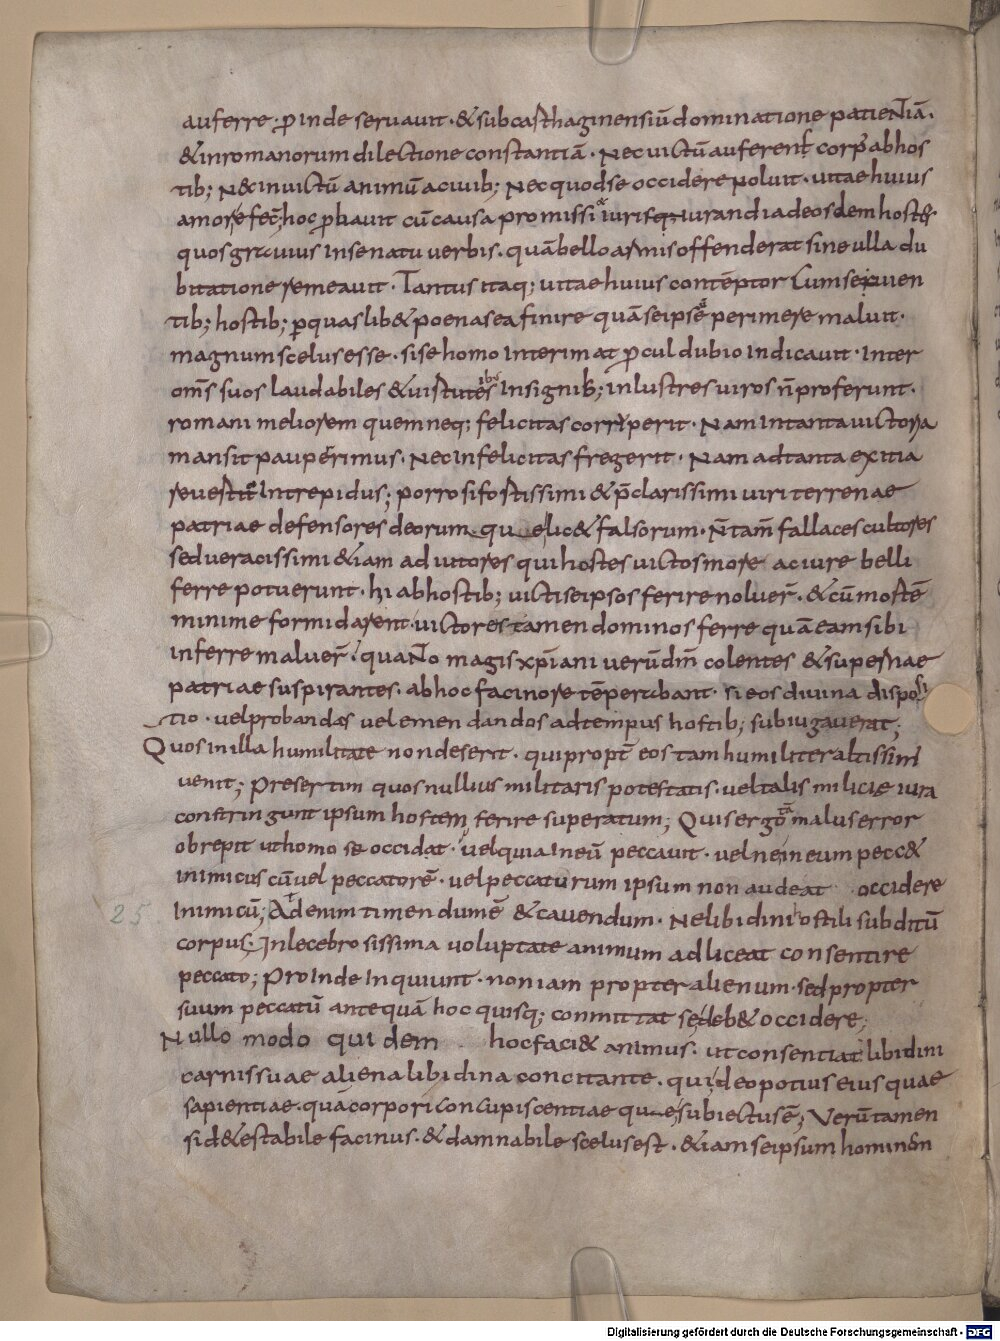 auferre· ꝓinde seruauit· & sub carthaginensiū dominatione patientiā·
& in romanorum dilectione constantiā· Nec uictū auferent corpꝰ ab hos
tib; Nec inuictū animū a ciuib; Nec quod se occidere noluit· uitae huius
amore fec̄; hoc ꝓbauit cū causa promissi iurisq; iurandi ad eosdem hostes·
quos grauius in senatu uerbis· quā bello armis offenderat sine ulla du
bitatione remeauit· Tantus itaq; uitae huius contēptor cum seuien
tib; hostib; ꝑ quaslib& poenas ea finire quā se ipsē perimere maluit·
magnum scelus esse· si se homo interimat ꝓcul dubio indicauit· Inter
oms̄ suos laudabiles & uirtutibus insignib; inlustres uiros n̄ proferunt·
romani meliorem quem neq; felicitas corriperit· Nam in tanta uictoria
mansit pauperrimus· Nec infelicitas fregerit· Nam ad tanta exitia
reuestit intrepidus; porro si fortissimi & p̄clarissimi uiri terrenae
patriae defensores deorum lic& falsorum· n̄ tam̄ fallaces cultores
sed ueracissimi &iam ad iutores qui hostes uictos more ac iure belli
ferre potuerunt· hi ab hostib; uicti se ipsos ferire noluer̄· & cū mortē
minime formidarent· uictores tamen dominos ferre quā eam sibi
inferre maluer̄· quanto magis xp̄iani uerū dm̄ colentes & supernae
patriae suspirantes· ab hoc facinore tēperabant· si eos diuina disposi
tio· uel probandos uel emendandos ad tempus hostib; subiugauerat;
Quos in illa humilitate non deserit· qui propt̄ eos tam humiliter altissimꝰ
uenit; Presertim quos nullius militaris potestatis· uel talis milicie iura
constringunt ipsum hostem ferire superatum; Quis ergo tā malus error
obrepit ut homo se occidat· uel quia in eū peccauit· uel ne in eum pecc&
inimicus cū uel peccatorē· uel peccaturum ipsum non audeat occidere
Inimicū; At enim timendum ē & cauendum· Ne libidini ostili subditū
corpus· Inlecebrosissima uoluptate animum adliceat consentire
peccato; Proinde inquiunt· non iam propter alienum· sed propter
suum peccatū antequā hoc quisq; conmittat se deb& occidere;
Nullo modo quidem hoc faci& animus· ut consentiat libidini
carnis suae aliena libidina concitante· qui deo potius eiusquae
sapientiae· quā corpori concupiscentiae que subiectus ē; Verūtamen
si d&estabile facinus· & damnabile scelus est· &iam se ipsum hominem
25.
Digitalisierung gefördert durch die Deutsche Forschungsgemeinschaft - DFG